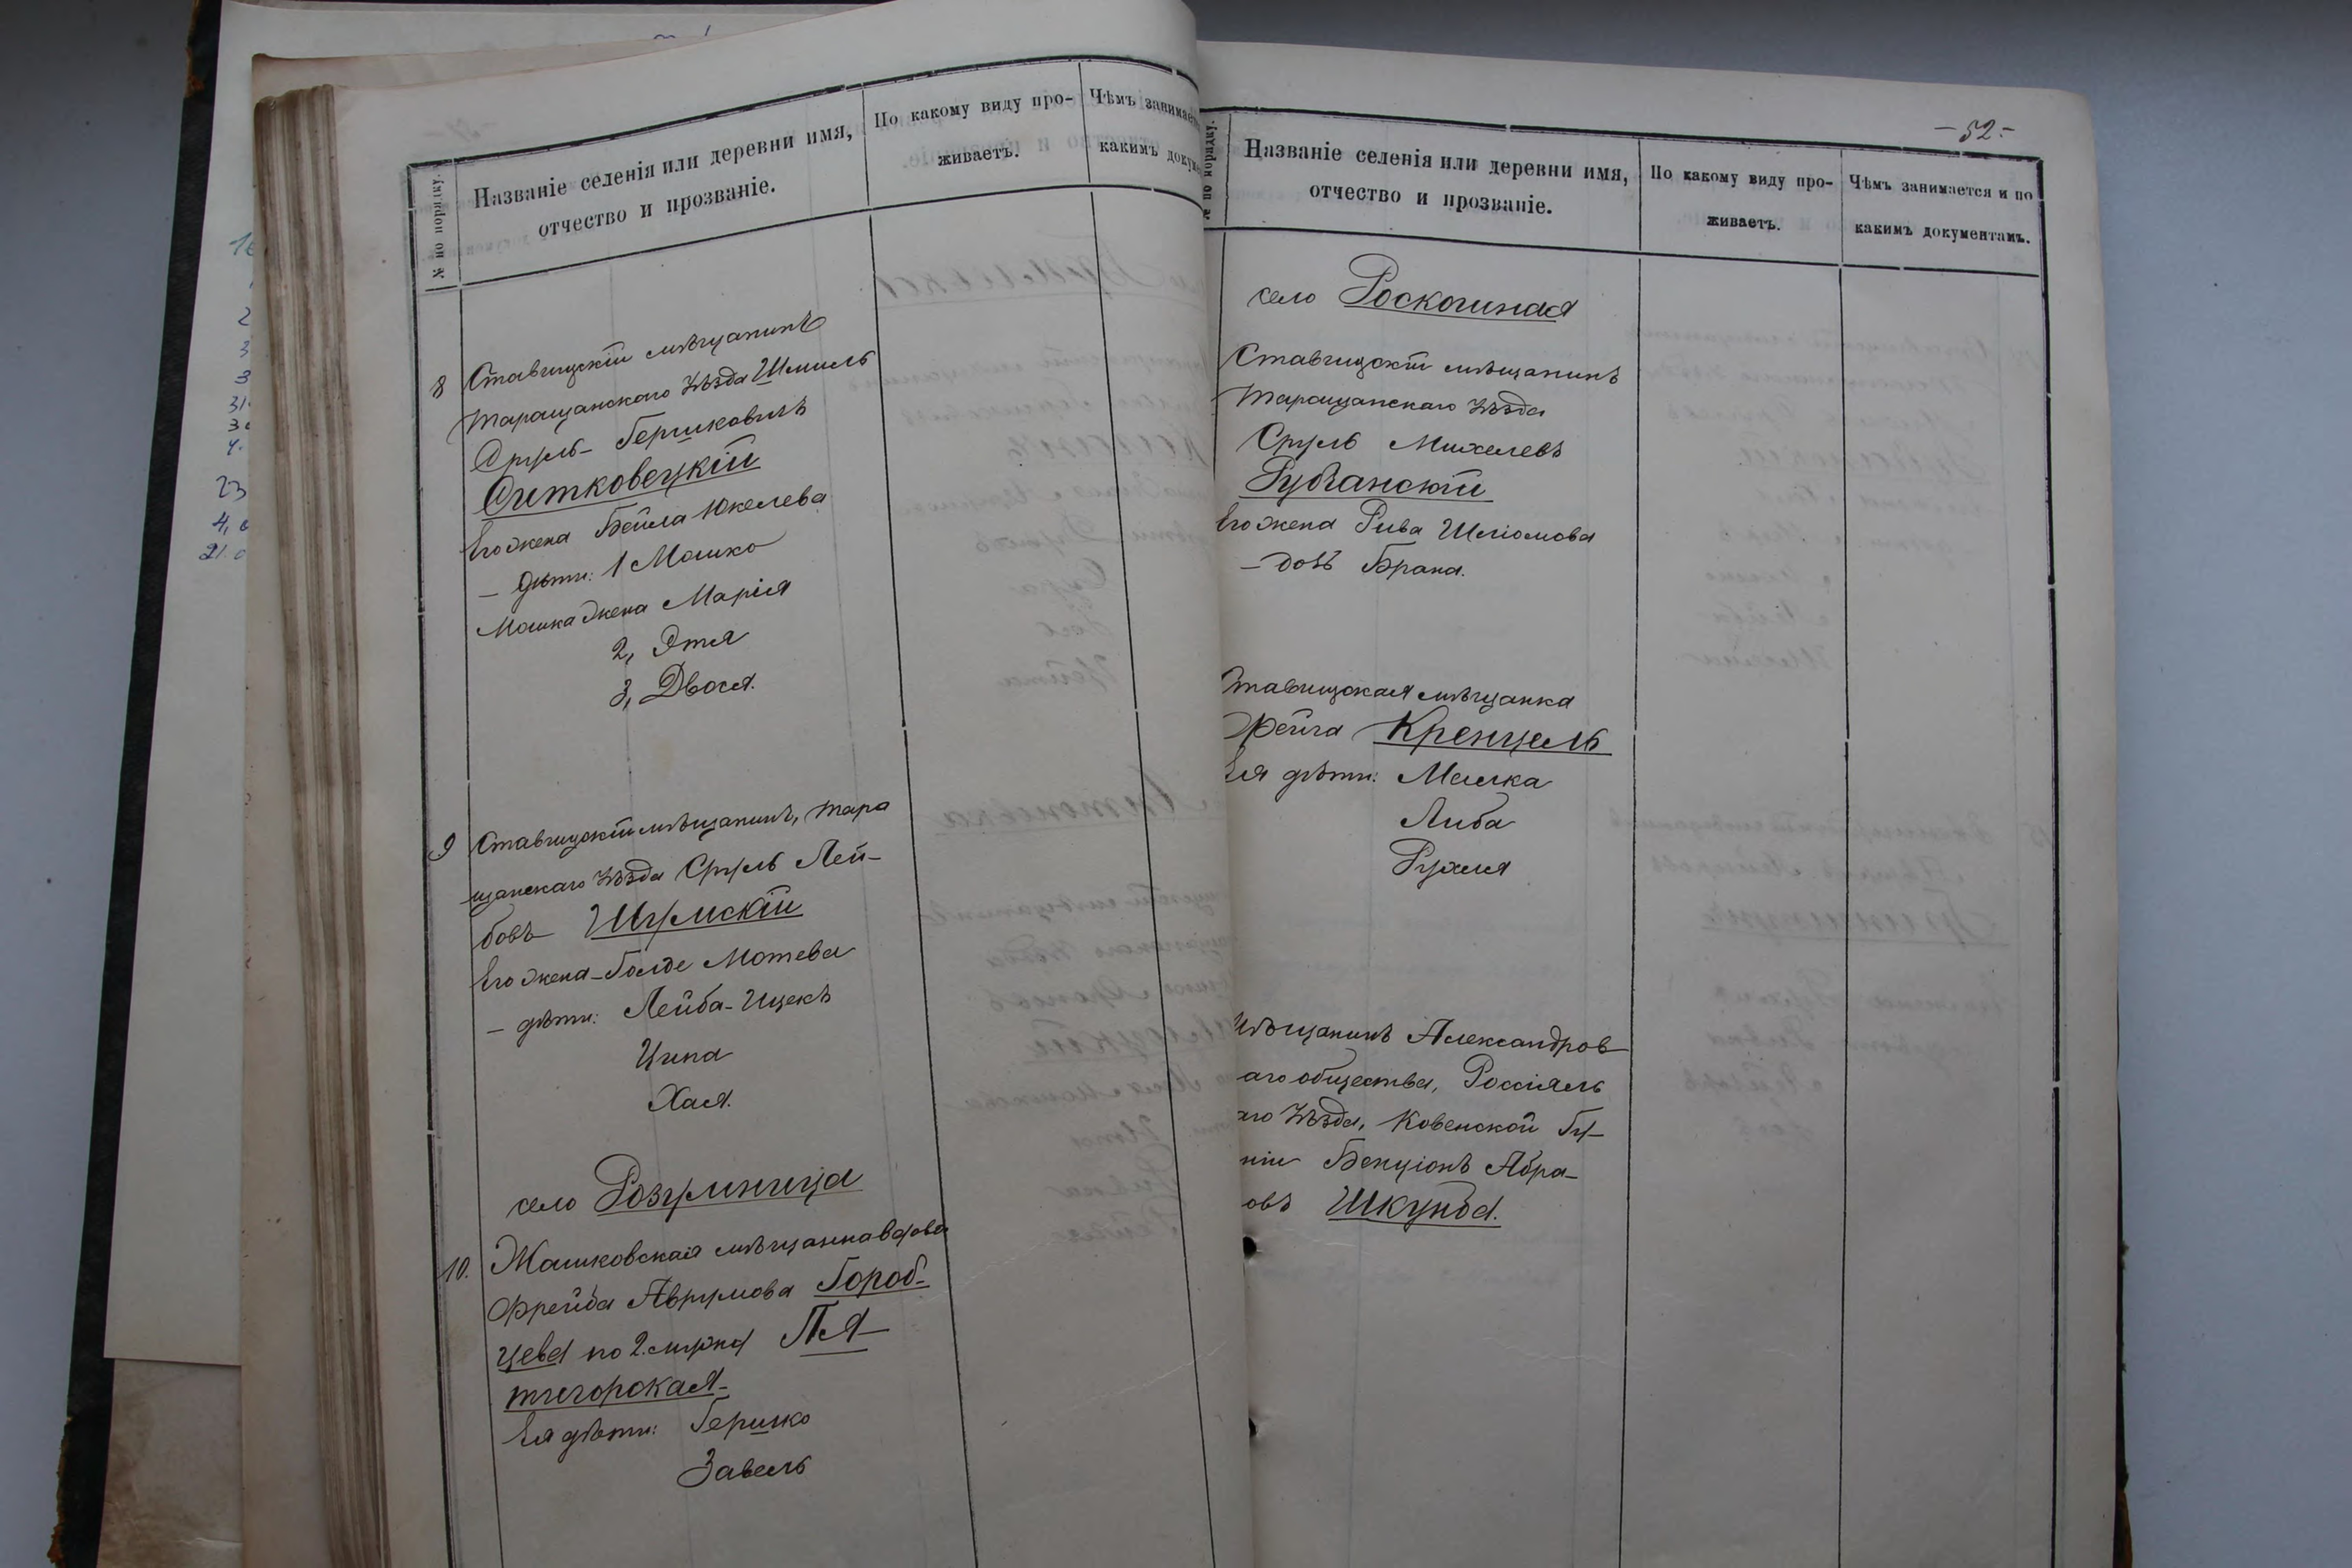 № по порядку.
Названіе селенія или деревни имя,
отчество и прозваніе.
По какому виду про-
живаетъ.
Чѣмъ занимает
какимъ докум
8 Ставищскій мѣщанинъ
Таращанскаго уѣзда Шмиль
Сруль-Гершковичъ
Ситковецкій
Его жена Бейла Юкелева
- дѣти: 1 Мошко
Мошка жена Марія
2, Этя
3, Двося.
9 Ставищскій мѣщанинъ, Тара
щанскаго уѣзда Сруль Лей-
бовъ Шумскій
Его жена-Голде Мотева
- дѣти: Лейба-Ицекъ
Ципа
Хася.
село Розумница
10. Жашковская мѣщанка вдова
Фрейда Аврумова Город-
цева по 2. мужу Пя-
тигорская-
Ея дѣти: Гершко
Завель
-52-
№ по порядку.
Названіе селенія или деревни имя,
отчество и прозваніе.
По какому виду про-
живаетъ.
Чѣмъ занимается и по
какимъ документамъ.
село Роскошная
Ставищскій мѣщанинъ
Таращанскаго уѣзда
Сруль Михелевъ
Рубанскій
Его жена Рива Шліомова
- дочь Брана.
Ставищская мѣщанка
Фейга Кренцель
Ея дѣти: Малка
Либа
Рухля
мѣщанинъ Александров
аго общества, Россіянь
аго уѣзда, Ковенской Гу-
ніи Бенціонъ Абра-
овъ Шкунда.